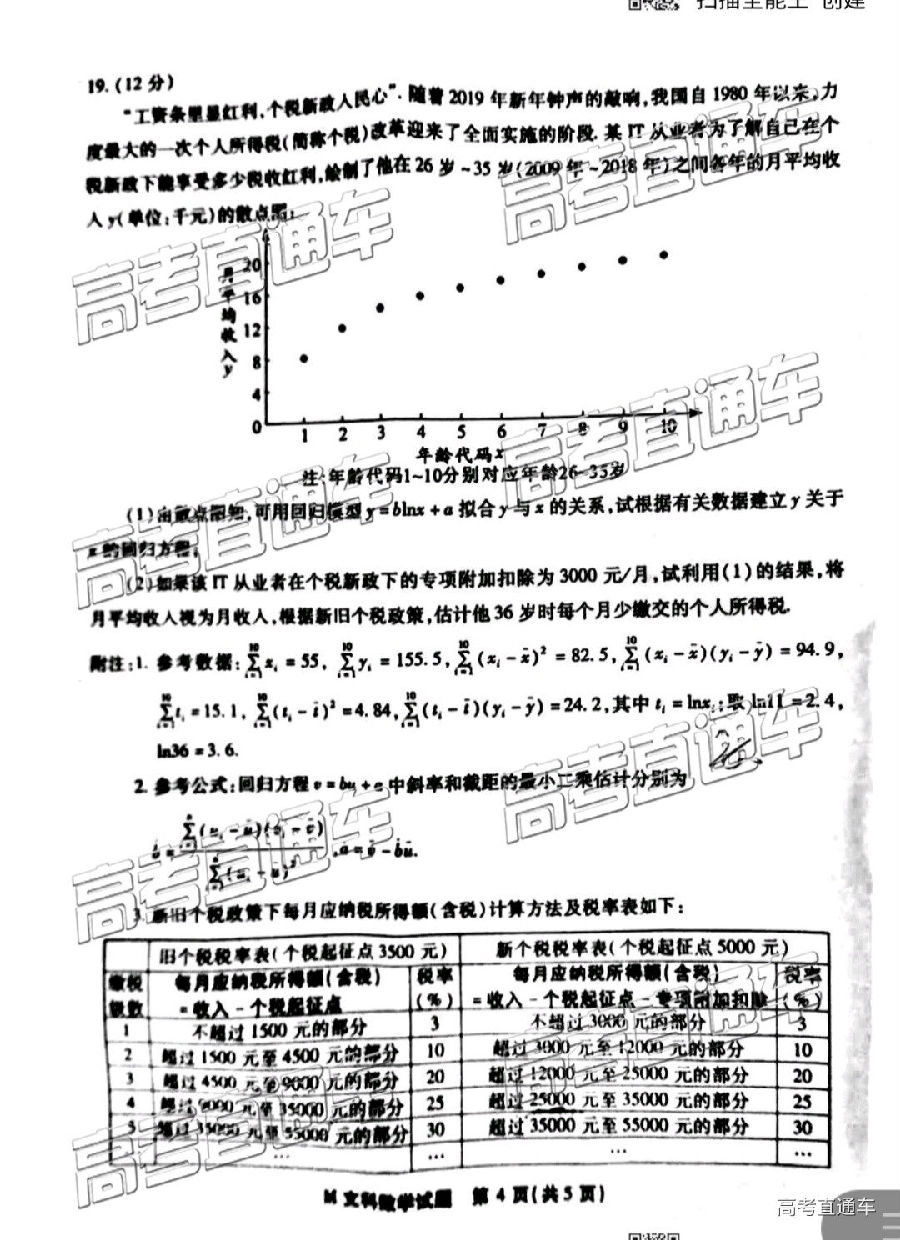 扫描全能王 创建
19.(12分)
“工资条里显红利,个税新政入民心”.随着2019年新年钟声的敲响,我国自1980年以来,力
度最大的一次个人所得税(简称个税)改革迎来了全面实施的阶段.某IT从业者为了解自己在个
税新政下能享受多少税收红利,绘制了他在26岁~35岁(2009年~2018年)之间各年的月平均收
入y(单位:千元)的散点图:
月平均收入y
20
16
12
8
4
0 1 2 3 4 5 6 7 8 9 10
年龄代码x
注:年龄代码1~10分别对应年龄26~35岁
(1)由散点图知,可用回归模型y=blnx+a拟合y与x的关系,试根据有关数据建立y关于
x的回归方程;
(2)如果该IT从业者在个税新政下的专项附加扣除为3000元/月,试利用(1)的结果,将
月平均收入视为月收入,根据新旧个税政策,估计他36岁时每个月少缴交的个人所得税.
附注:1.参考数据:∑xᵢ=55,∑yᵢ=155.5,∑(xᵢ-x̄)²=82.5,∑(xᵢ-x̄)(yᵢ-ȳ)=94.9,
∑tᵢ=15.1,∑(tᵢ-t̄)²=4.84,∑(tᵢ-t̄)(yᵢ-ȳ)=24.2,其中tᵢ=lnxᵢ;取ln11=2.4,
ln36=3.6.
2.参考公式:回归方程v=bu+a中斜率和截距的最小二乘估计分别为
b=∑(uᵢ-ū)(vᵢ-v̄)/∑(uᵢ-ū)²,a=v̄-bū.
3.新旧个税政策下每月应纳税所得额(含税)计算方法及税率表如下:
旧个税税率表(个税起征点3500元) 新个税税率表(个税起征点5000元)
缴税级数 每月应纳税所得额(含税)=收入-个税起征点 税率(%) 每月应纳税所得额(含税)=收入-个税起征点-专项附加扣除 税率(%)
1 不超过1500元的部分 3 不超过3000元的部分 3
2 超过1500元至4500元的部分 10 超过3000元至12000元的部分 10
3 超过4500元至9000元的部分 20 超过12000元至25000元的部分 20
4 超过9000元至35000元的部分 25 超过25000元至35000元的部分 25
5 超过35000元至55000元的部分 30 超过35000元至55000元的部分 30
… … … …
M文科数学试题 第4页(共5页)
高考直通车